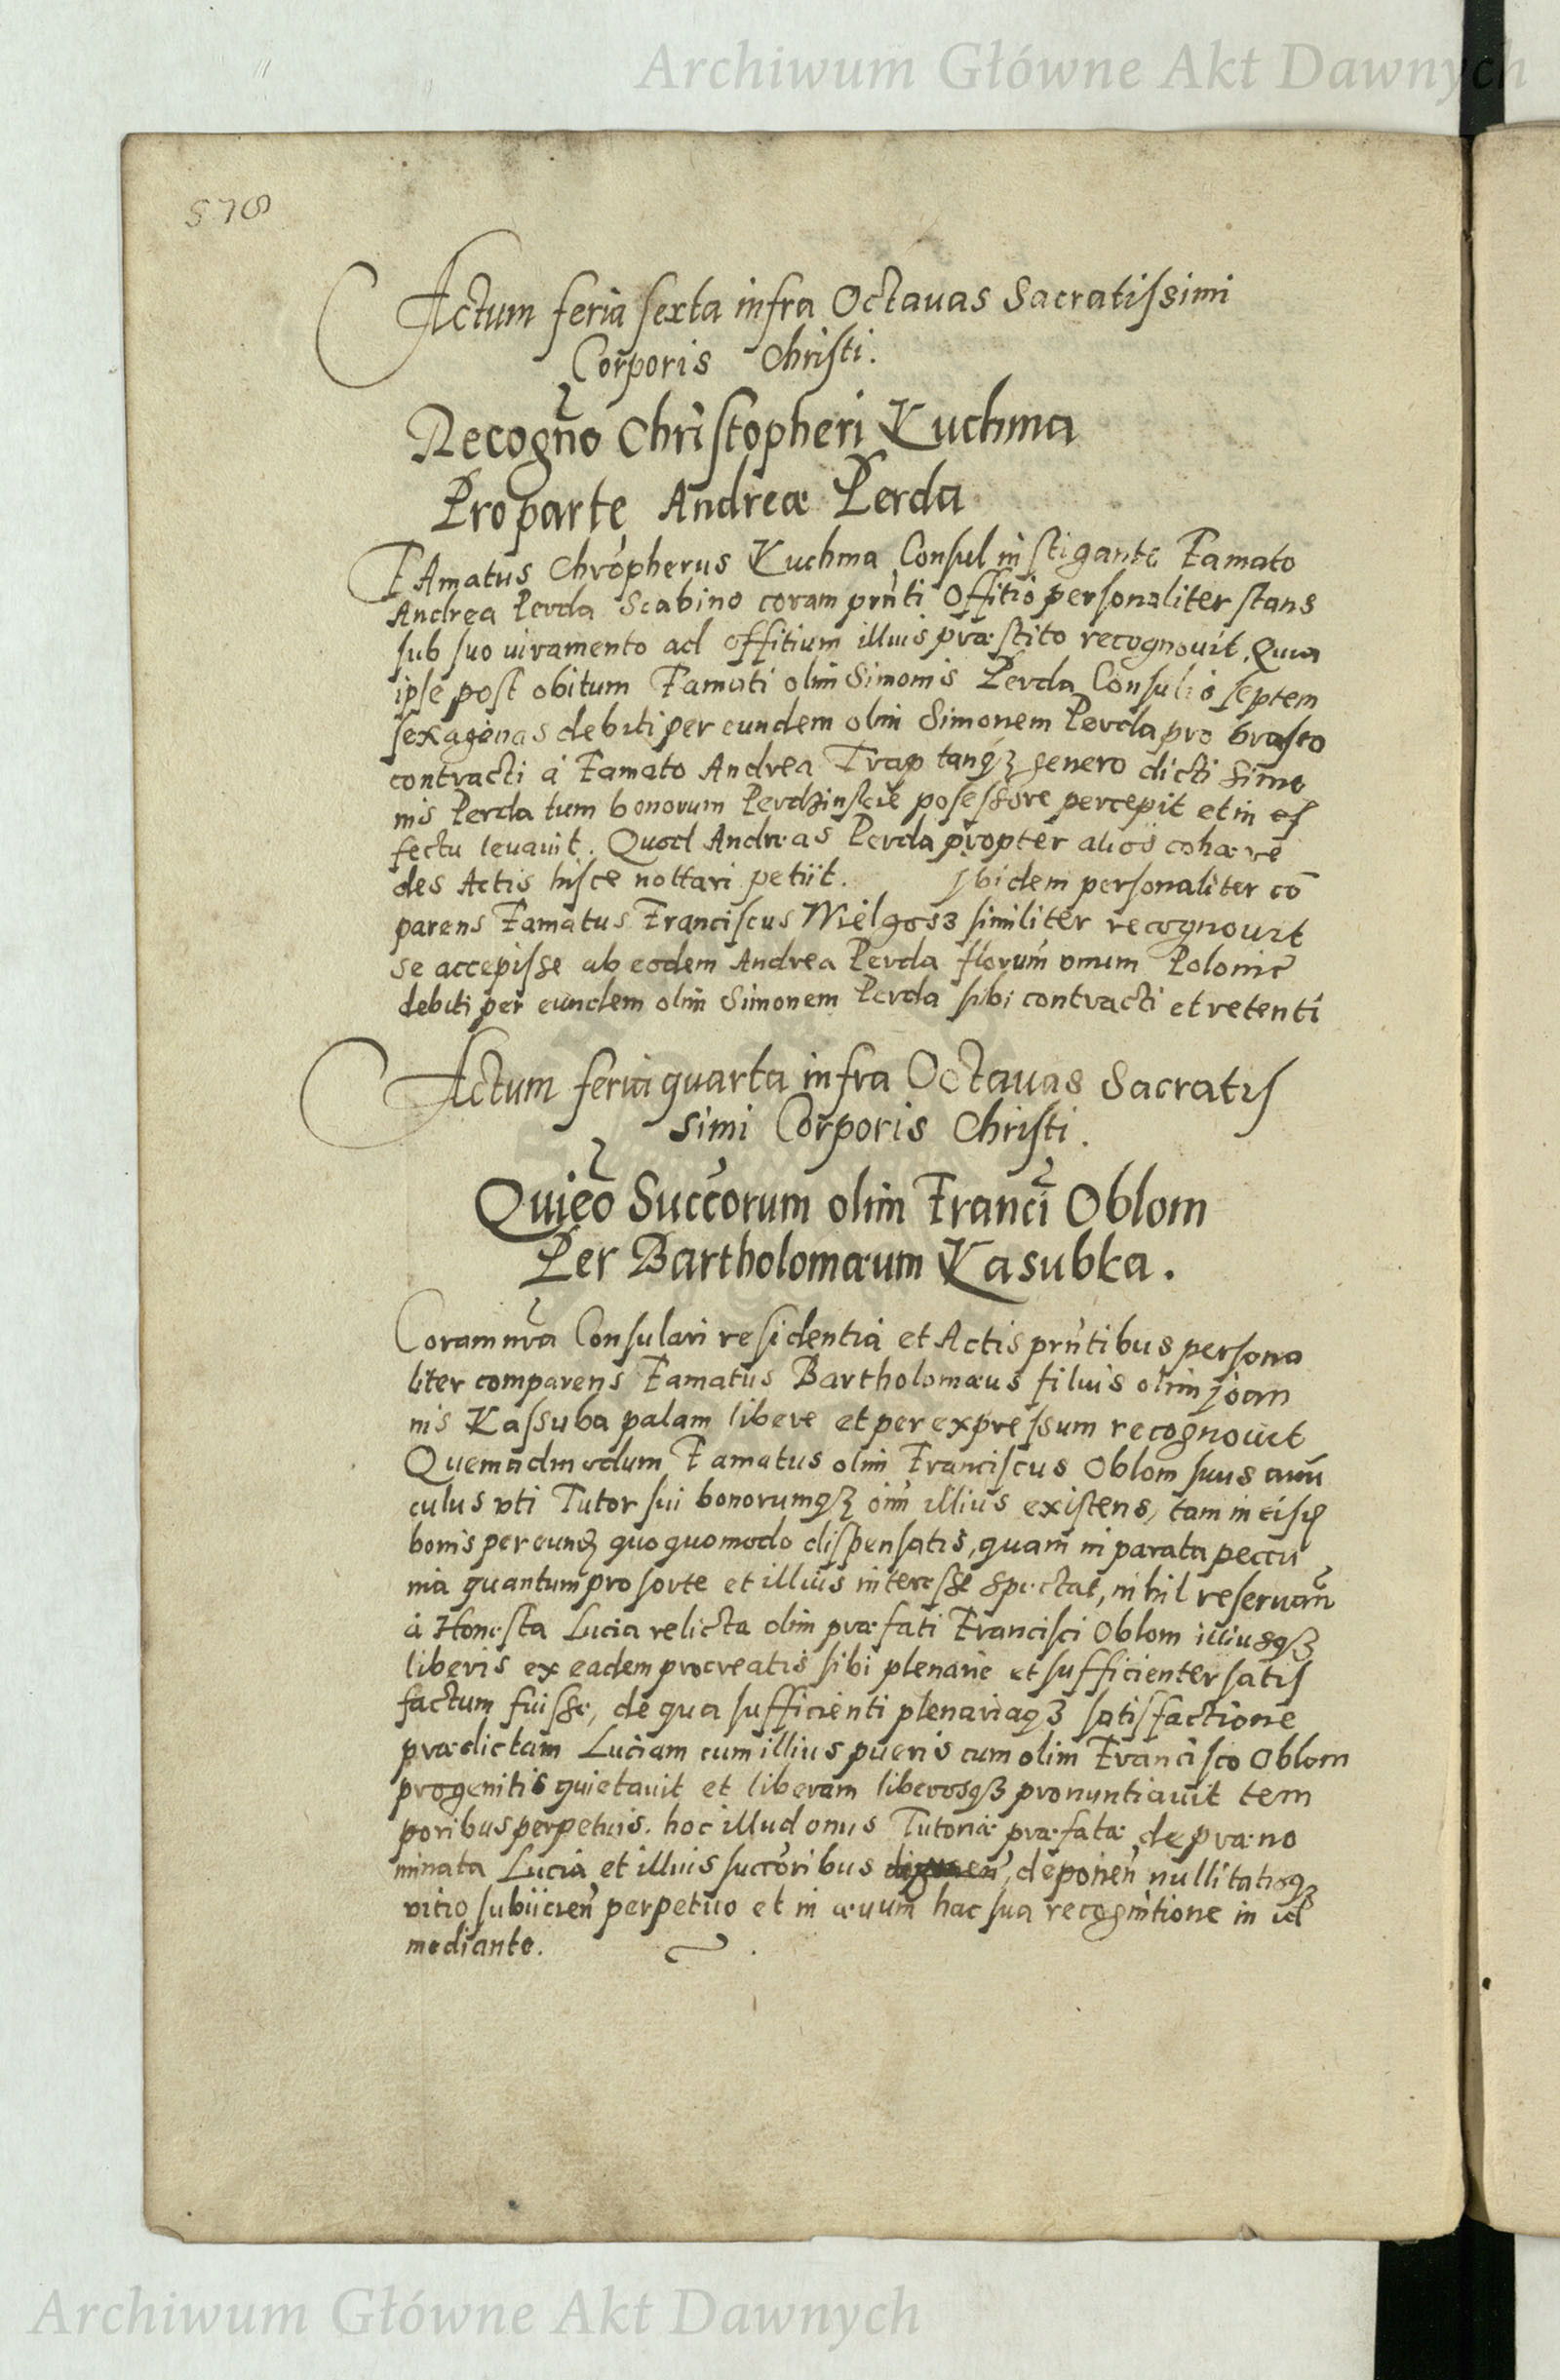 Archiwum Główne Akt Dawnych
578
Actum feria sexta infra Octauas Sacratissimi
Corporis Christi.
Recogno Christopheri Kuchma
Pro parte Andreæ Perda
FAmatus Chropherus Kuchma Consul instigante Famato
Andrea Perda Scabino coram prnti Offitio personaliter stans
sub suo iuramento ad offitium illius præstito recognouit. Quia
ipse post obitum Famati olim Simonis Perda Consulis septem
sexagenas debiti per eundem olim Simonem Perda pro braseo
contracti à Famato Andrea Trap tanqȝ genero dicti Simo
nis Perda tum bonorum Perdzinskie posessore percepit et in ef
fectu leuauit. Quod Andreas Perda propter alios cohære
des Actis hisce nottari petiit. Ibidem personaliter co
parens Famatus Franciscus Wielgosz similiter recognouit
se accepisse ab eodem Andrea Perda florum vnum Polonic
debiti per eundem olim Simonem Perda sibi contracti et retenti
Actum feria quarta infra Octauas Sacratis
simi Corporis Christi.
Quieo Succorum olim Franci Oblom
Per Bartholomæum Kasubka.
Coram nra Consulari residentia et Actis prntibus persona
liter comparens Famatus Bartholomæus filius olim Joan
nis Kassuba palam libere et per expressum recognouit
Quemadmodum Famatus olim Franciscus Oblom suus auu
culus vti Tutor sui bonorumqȝ oim illius existens, tam in eisd
bonis per eundȝ quoquomodo dispensatis, quam in parata peccu
nia quantum pro sorte et illius interesse spectat, nihil reseruan
à Honesta Lucia relicta olim præfati Francisci Oblom illiusqȝ
liberis ex eadem procreatis sibi plenarie et sufficienter satis
factum fuisse, de qua sufficienti plenariaqȝ satisfactione
prædictam Luciam cum illius pueris cum olim Francisco Oblom
progenitis quietauit et liberam liberosqȝ pronuntiauit tem
poribus perpetuis. hoc illud onus Tutoriæ præfatæ de præno
minata Lucia et illius succoribus deponen nullitatisqȝ
vitio subiicien perpetuo et in æuum hac sua recognitione in id
mediante.
Archiwum Główne Akt Dawnych